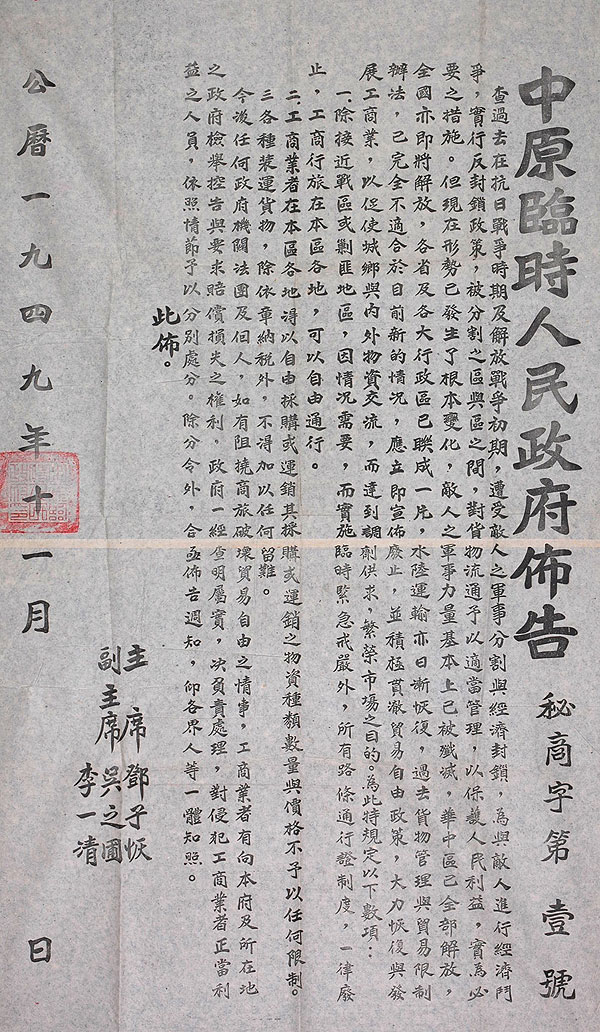 中原臨時人民政府佈告
秘商字第壹號
查過去在抗日戰爭時期及解放戰爭初期，遭受敵人之軍事分割與經濟封鎖，為與敵人進行經濟鬥
爭，實行反封鎖政策，被分割之區與區之間，對貨物流通予以適當管理，以保護人民利益，實為必
要之措施。但現在形勢已發生了根本變化，敵人之軍事力量基本上已被殲滅，華中區已全部解放，
全國亦即將解放，各省及各大行政區已聯成一片，水陸運輸亦日漸恢復，過去貨物管理與貿易限制
辦法，已完全不適合於目前新的情況，應立即宣佈廢止，並積極貫澈貿易自由政策，大力恢復與發
展工商業，以促使城鄉與內外物資交流，而達到調劑供求，繁榮市場之目的。為此特規定以下數項：
一、除接近戰區或剿匪地區，因情況需要，而實施臨時緊急戒嚴外，所有路條通行證制度，一律廢
止，工商行旅在本區各地，可以自由通行。
二、工商業者在本區各地得以自由採購或運銷其採購或運銷之物資種類數量與價格不予以任何限制。
三、各種裝運貨物，除依章納稅外，不得加以任何留難。
今後任何政府機關法團及個人，如有阻撓商旅破壞貿易自由之情事，工商業者有向本府及所在地
之政府檢舉控告與要求賠償損失之權利，政府一經查明屬實，決負責處理，對侵犯工商業者正當利
益之人員，依照情節予以分別處分。除分令外，合亟佈告週知，仰各界人等一體知照。
此佈。
主席 鄧子恢
副主席 吳芝圃
李一清
公曆一九四九年十一月 日